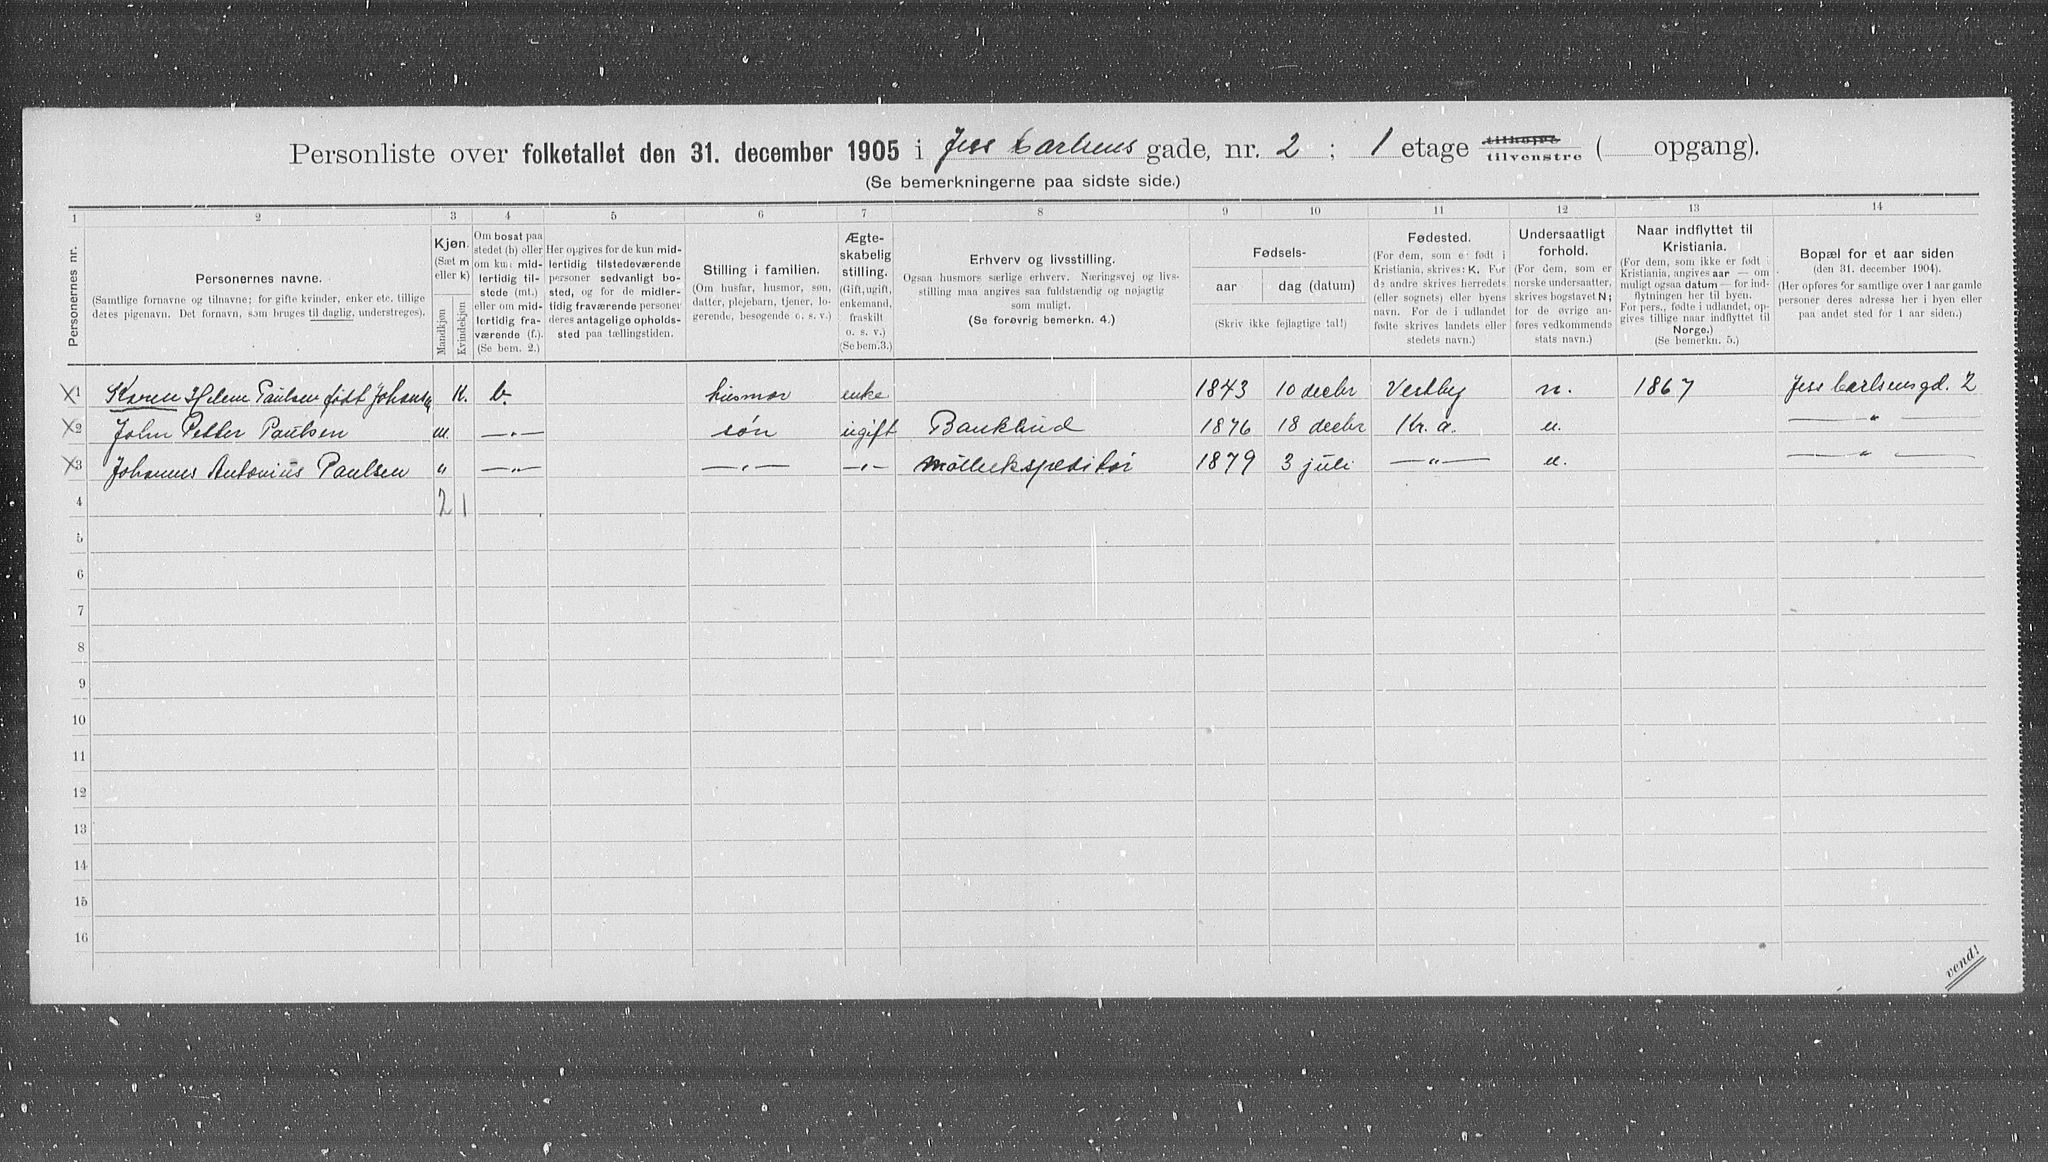 Personliste over folketallet den 31. december 1905 i Jess Carlsens gade, nr. 2 ; 1 etage tilhøjre tilvenstre ( opgang).
(Se bemerkningerne paa sidste side.)
1 2 3 4 5 6 7 8 9 10 11 12 13 14
Personernes nr.
Personernes navne.
(Samtlige fornavne og tilnavne; for gifte kvinder, enker etc. tillige
deres pigenavn. Det fornavn, som bruges til daglig, understreges).
Kjøn.
(Sæt m
eller k)
Mandkjøn
Kvindekjøn
Om bosat paa
stedet (b) eller
om kun mid-
lertidig til-
stede (mt.)
eller om mid-
lertidig fra-
værende (f.).
(Se bem. 2.)
Her opgives for de kun mid-
lertidig tilstedeværende
personer sedvanligt bo-
sted, og for de midler-
tidig fraværende personer
deres antagelige opholds-
sted paa tællingstiden.
Stilling i familien.
(Om husfar, husmor, søn,
datter, plejebarn, tjener, lo-
gerende, besøgende o. s. v.)
Ægte-
skabelig
stilling.
(Gift, ugift,
enkemand,
fraskilt
o. s. v.)
(Se bem. 3.)
Erhverv og livsstilling.
Ogsaa husmors særlige erhverv. Næringsvej og livs-
stilling maa angives saa fuldstændig og nøjagtig
som muligt.
(Se forøvrig bemerkn. 4.)
Fødsels-
aar dag (datum)
(Skriv ikke fejlagtige tal!)
Fødested.
(For dem, som er født i
Kristiania, skrives: K. For
de andre skrives herredets
(eller sognets) eller byens
navn. For de i udlandet
fødte skrives landets eller
stedets navn.)
Undersaatligt
forhold.
(For dem, som er
norske undersaatter,
skrives bogstavet N;
for de øvrige an-
føres vedkommende
stats navn.)
Naar indflyttet til
Kristiania.
(For dem, som ikke er født i
Kristiania, angives aar — om
muligt ogsaa datum — for ind-
flytningen her til byen.
For pers., fødte i udlandet, op-
gives tillige naar indflyttet til
Norge.)
(Se bemerkn. 5.)
Bopæl for et aar siden
(den 31. december 1904).
(Her opføres for samtlige over 1 aar gamle
personer deres adresse her i byen eller
paa andet sted for 1 aar siden.)
X1 Karen Helene Paulsen født Johansen K. b. husmor enke 1843 10 decbr Vestby n. 1867 Jess Carlsens gd. 2
X2 John Petter Paulsen m. —„— søn ugift Bankbud 1876 18 decbr Kr.a. n. —„—
X3 Johannes Antonius Paulsen „ —„— —„— —„— Mølleekspeditør 1879 3 juli —„— n. —„—
4 2 1
5
6
7
8
9
10
11
12
13
14
15
16
vend!